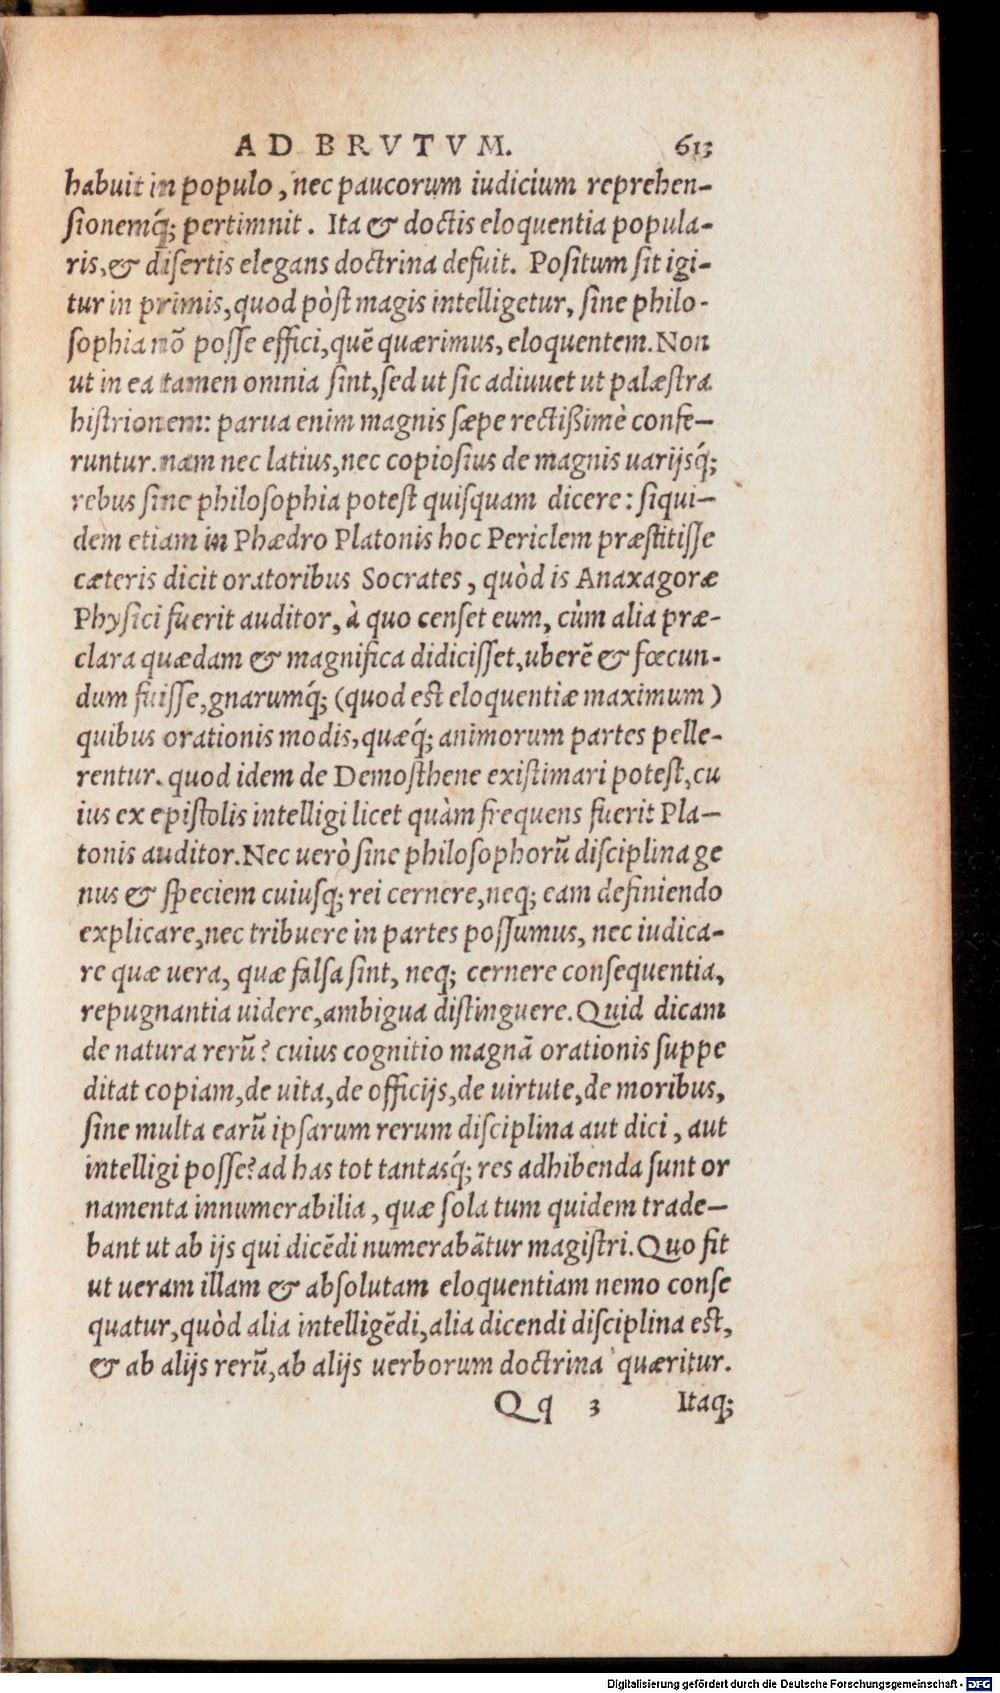 AD BRVTVM. 613
habuit in populo, nec paucorum iudicium reprehen-
ſionemq́; pertimnit. Ita & doctis eloquentia popula-
ris, & diſertis elegans doctrina defuit. Poſitum ſit igi-
tur in primis, quod pòſt magis intelligetur, ſine philo-
ſophia nõ poſſe effici, quẽ quærimus, eloquentem. Non
ut in ea tamen omnia ſint, ſed ut ſic adiuuet ut palæſtra
hiſtrionem: parua enim magnis ſæpe rectißimè confe-
runtur. nam nec latius, nec copioſius de magnis uarijsq́;
rebus ſine philoſophia poteſt quiſquam dicere: ſiqui-
dem etiam in Phædro Platonis hoc Periclem præſtitiſſe
cæteris dicit oratoribus Socrates, quòd is Anaxagoræ
Phyſici fuerit auditor, à quo cenſet eum, cùm alia præ-
clara quædam & magnifica didiciſſet, uberẽ & fœcun-
dum fuiſſe, gnarumq́; (quod eſt eloquentiæ maximum)
quibus orationis modis, quæq́; animorum partes pelle-
rentur. quod idem de Demoſthene exiſtimari poteſt, cu
ius ex epiſtolis intelligi licet quàm frequens fuerit Pla-
tonis auditor. Nec uerò ſine philoſophorũ diſciplina ge
nus & ſpeciem cuiuſq; rei cernere, neq; eam definiendo
explicare, nec tribuere in partes poſſumus, nec iudica-
re quæ uera, quæ falſa ſint, neq; cernere conſequentia,
repugnantia uidere, ambigua diſtinguere. Quid dicam
de natura rerũ? cuius cognitio magnã orationis ſuppe
ditat copiam, de uita, de officijs, de uirtute, de moribus,
ſine multa earũ ipſarum rerum diſciplina aut dici, aut
intelligi poſſe? ad has tot tantasq́; res adhibenda ſunt or
namenta innumerabilia, quæ ſola tum quidem trade-
bant ut ab ijs qui dicẽdi numerabãtur magiſtri. Quo fit
ut ueram illam & abſolutam eloquentiam nemo conſe
quatur, quòd alia intelligẽdi, alia dicendi diſciplina eſt,
& ab alijs rerũ, ab alijs uerborum doctrina quæritur.
Qq 3 Itaq;
Digitalisierung gefördert durch die Deutsche Forschungsgemeinschaft - DFG